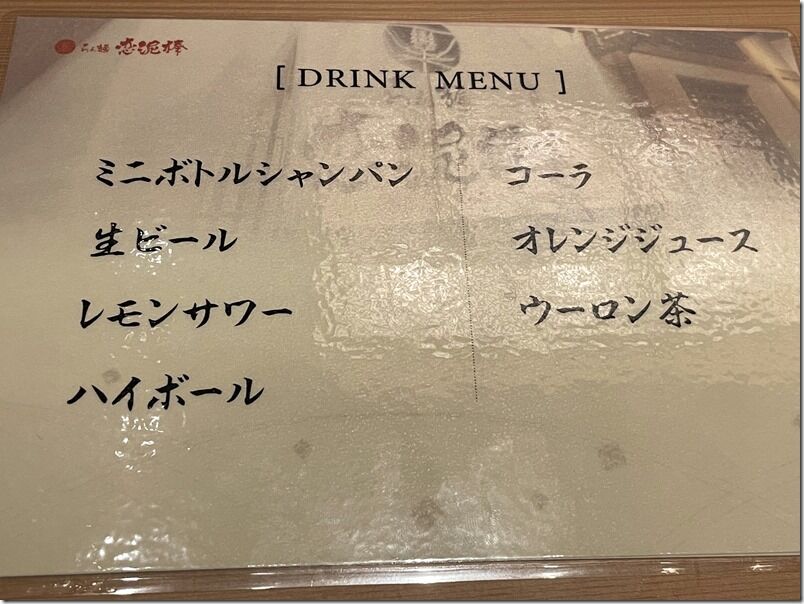 らぁ麺 恋泥棒
[ DRINK MENU ]
ミニボトルシャンパン
生ビール
レモンサワー
ハイボール
コーラ
オレンジジュース
ウーロン茶